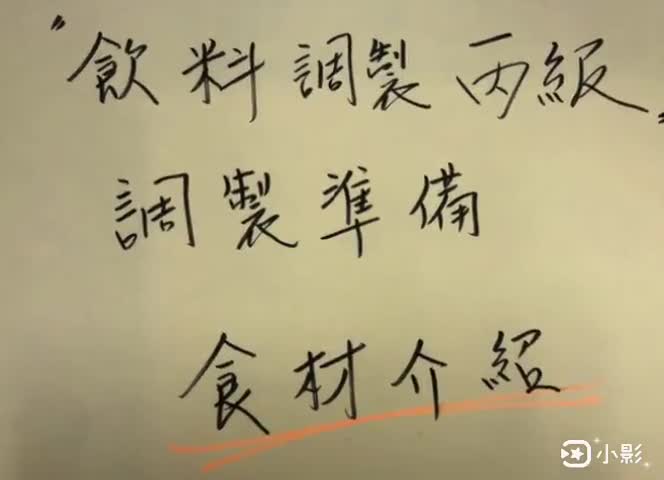 "飲料調製丙級"
調製準備
食材介紹
小影